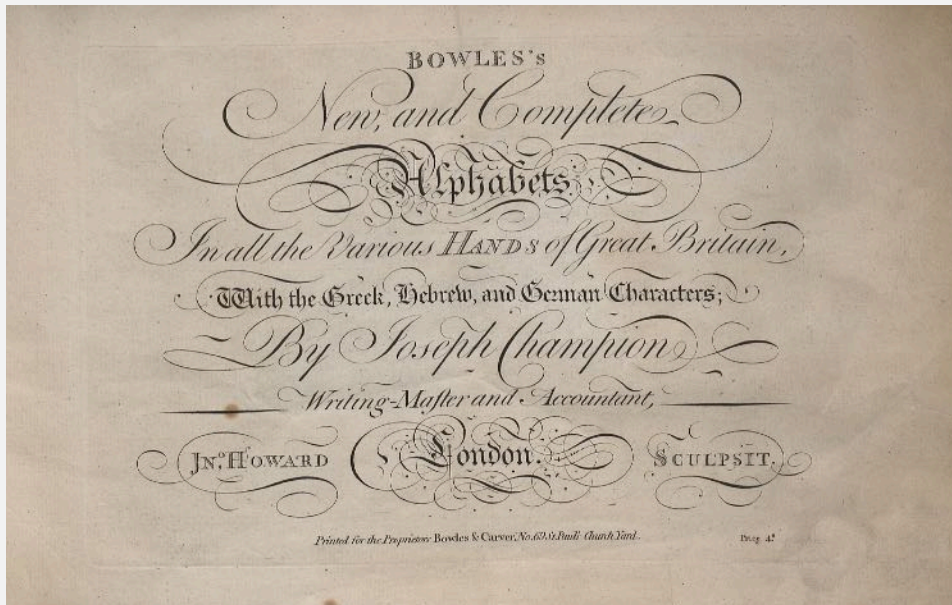 BOWLES's
New, and Complete
Alphabets
In all the Various HANDS of Great Britain,
With the Greek, Hebrew, and German Characters;
By Joseph Champion
Writing-Maſter and Accountant,
JNº. HOWARD London. SCULPSIT.
Printed for the Proprietors Bowles & Carver, No. 69 St. Paul's Church Yard.